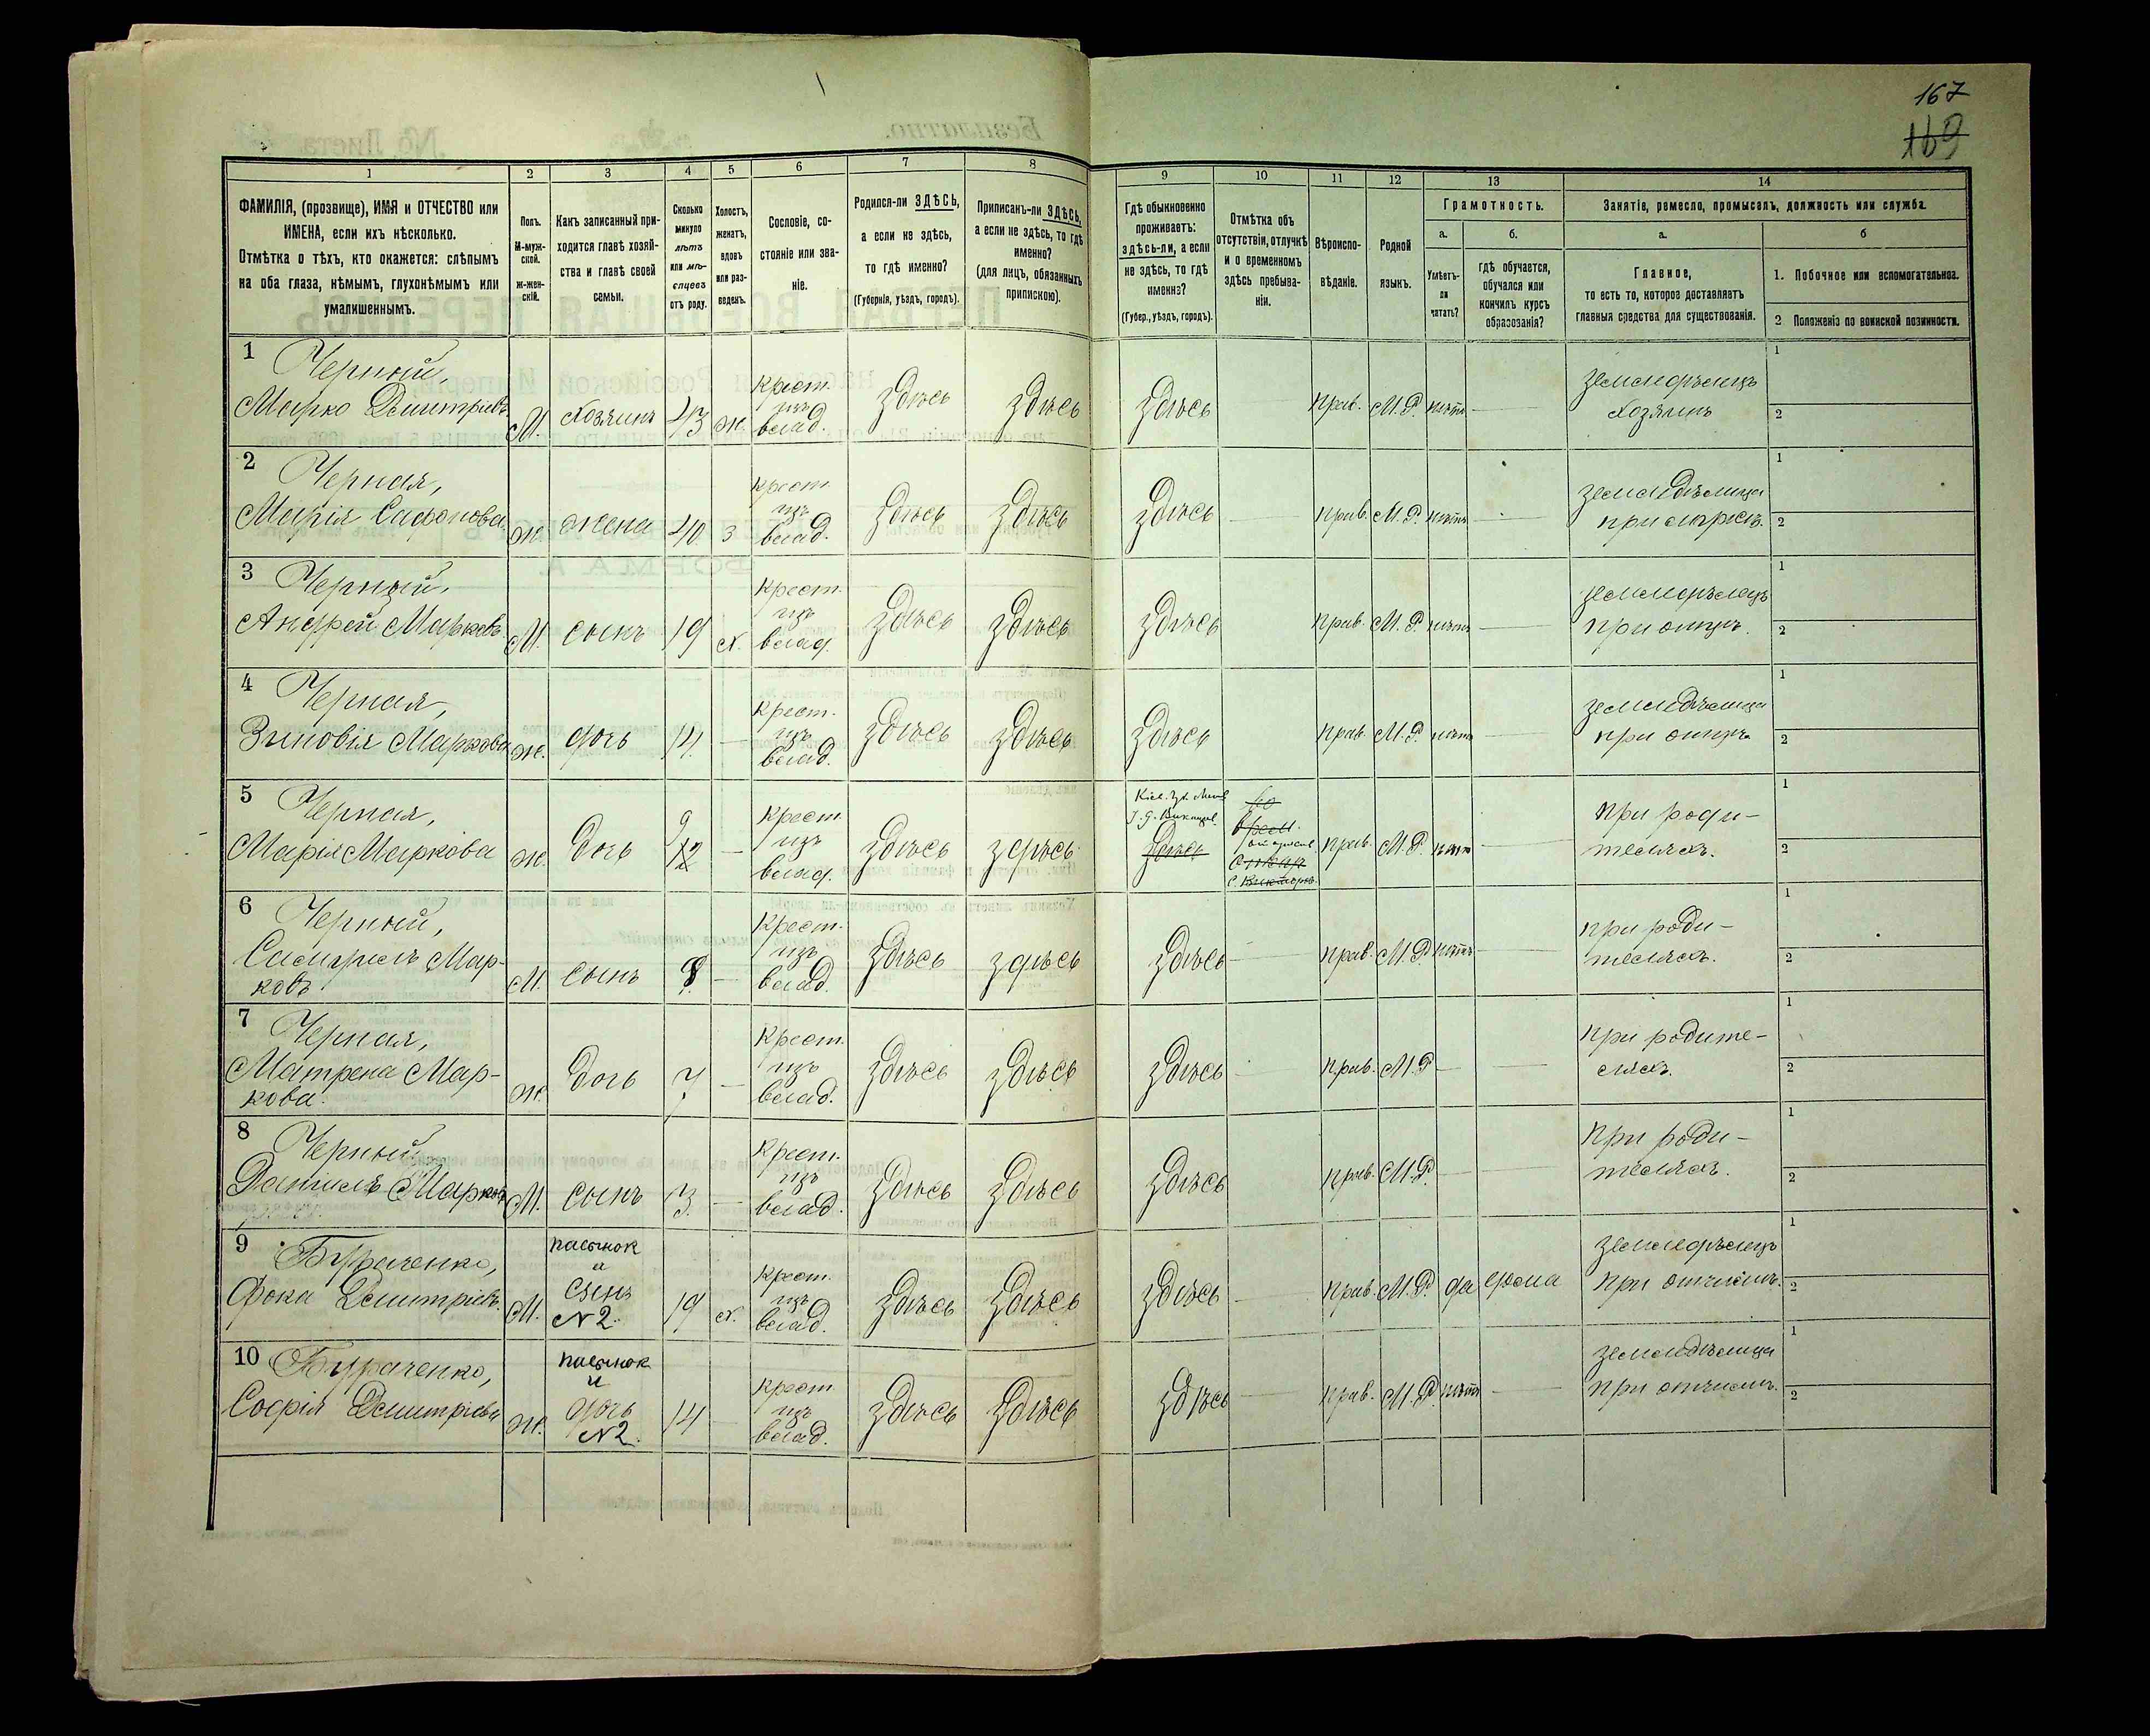 167
169
1
2
3
4
5
6
7
8
9
10
11
12
13
14
ФАМИЛІЯ, (прозвище), ИМЯ и ОТЧЕСТВО или
ИМЕНА, если ихъ нѣсколько.
Отмѣтка о тѣхъ, кто окажется: слѣпымъ
на оба глаза, нѣмымъ, глухонѣмымъ или
умалишеннымъ.
Полъ.
М-муж-
ской.
Ж-жен-
скій.
Какъ записанный при-
ходится главѣ хозяй-
ства и главѣ своей
семьи.
Сколько
минуло
лѣтъ
или мѣ-
сяцевъ
отъ роду.
Холостъ,
женатъ,
вдовъ
или раз-
веденъ.
Сословіе, со-
стояніе или зва-
ніе.
Родился-ли ЗДѢСЬ,
а если не здѣсь,
то гдѣ именно?
(Губернія, уѣздъ, городъ).
Приписанъ-ли ЗДѢСЬ,
а если не здѣсь, то гдѣ
именно?
(для лицъ, обязанныхъ
припискою).
Гдѣ обыкновенно
проживаетъ:
здѣсь-ли, а если
не здѣсь, то гдѣ
именно?
(Губер., уѣздъ, городъ).
Отмѣтка объ
отсутствіи, отлучкѣ
и о временномъ
здѣсь пребыва-
ніи.
Вѣроиспо-
вѣданіе.
Родной
языкъ.
Грамотность.
а.
б.
Умѣетъ-
ли
читать?
гдѣ обучается,
обучался или
кончилъ курсъ
образованія?
Занятіе, ремесло, промыселъ, должность или служба.
а.
б
Главное,
то есть то, которое доставляетъ
главныя средства для существованія.
1. Побочное или вспомогательное.
2 Положеніе по воинской повинности.
1 Черный,
Марко Дмитріевъ М. Хозяинъ 43 ж. крест. изъ влад. здѣсь здѣсь здѣсь прав. М.Р. нѣтъ земледѣлецъ
хозяинъ 1 2
2 Черная,
Марія Сафонова ж. жена 40 з крест. изъ влад. здѣсь здѣсь здѣсь прав. М.Р. нѣтъ земледѣлица
при мужѣ. 1 2
3 Черный,
Андрей Марковъ М. сынъ 19 х. крест. изъ влад. здѣсь здѣсь здѣсь прав. М.Р. нѣтъ земледѣлецъ
при отцѣ. 1 2
4 Черная,
Зиновія Маркова ж. дочь 14. крест. изъ влад. здѣсь здѣсь здѣсь прав. М.Р. нѣтъ земледѣлица
при отцѣ 1 2
5 Черная,
Марія Маркова ж. дочь 9 12 крест. изъ влад. здѣсь здѣсь здѣсь прав. М.Р. нѣтъ при роди-
теляхъ. 1 2
6 Черный,
Самуилъ Мар-
ковъ М. сынъ 8. крест. изъ влад. здѣсь здѣсь здѣсь прав. М.Р. нѣтъ при роди-
теляхъ. 1 2
7 Черная,
Матрена Мар-
кова. ж. дочь 7 крест. изъ влад. здѣсь здѣсь здѣсь прав. М.Р при родите-
ляхъ. 1 2
8 Черный
Даніилъ Марковъ М. сынъ 3. крест. изъ влад. здѣсь здѣсь здѣсь прав. М.Р. при роди-
теляхъ. 1 2
9 Бураченко,
Фока Дмитріевъ. М. пасынок и сынъ №2. 19 х. крест. изъ влад. здѣсь здѣсь здѣсь прав. М.Р. да дома земледѣлецъ
при отчимѣ. 1 2
10 Бураченко,
Софія Дмитріева ж. пасынок и дочь №2. 14 крест изъ влад. здѣсь здѣсь здѣсь прав. М.Р. нѣтъ земледѣлица
при отчимѣ. 1 2